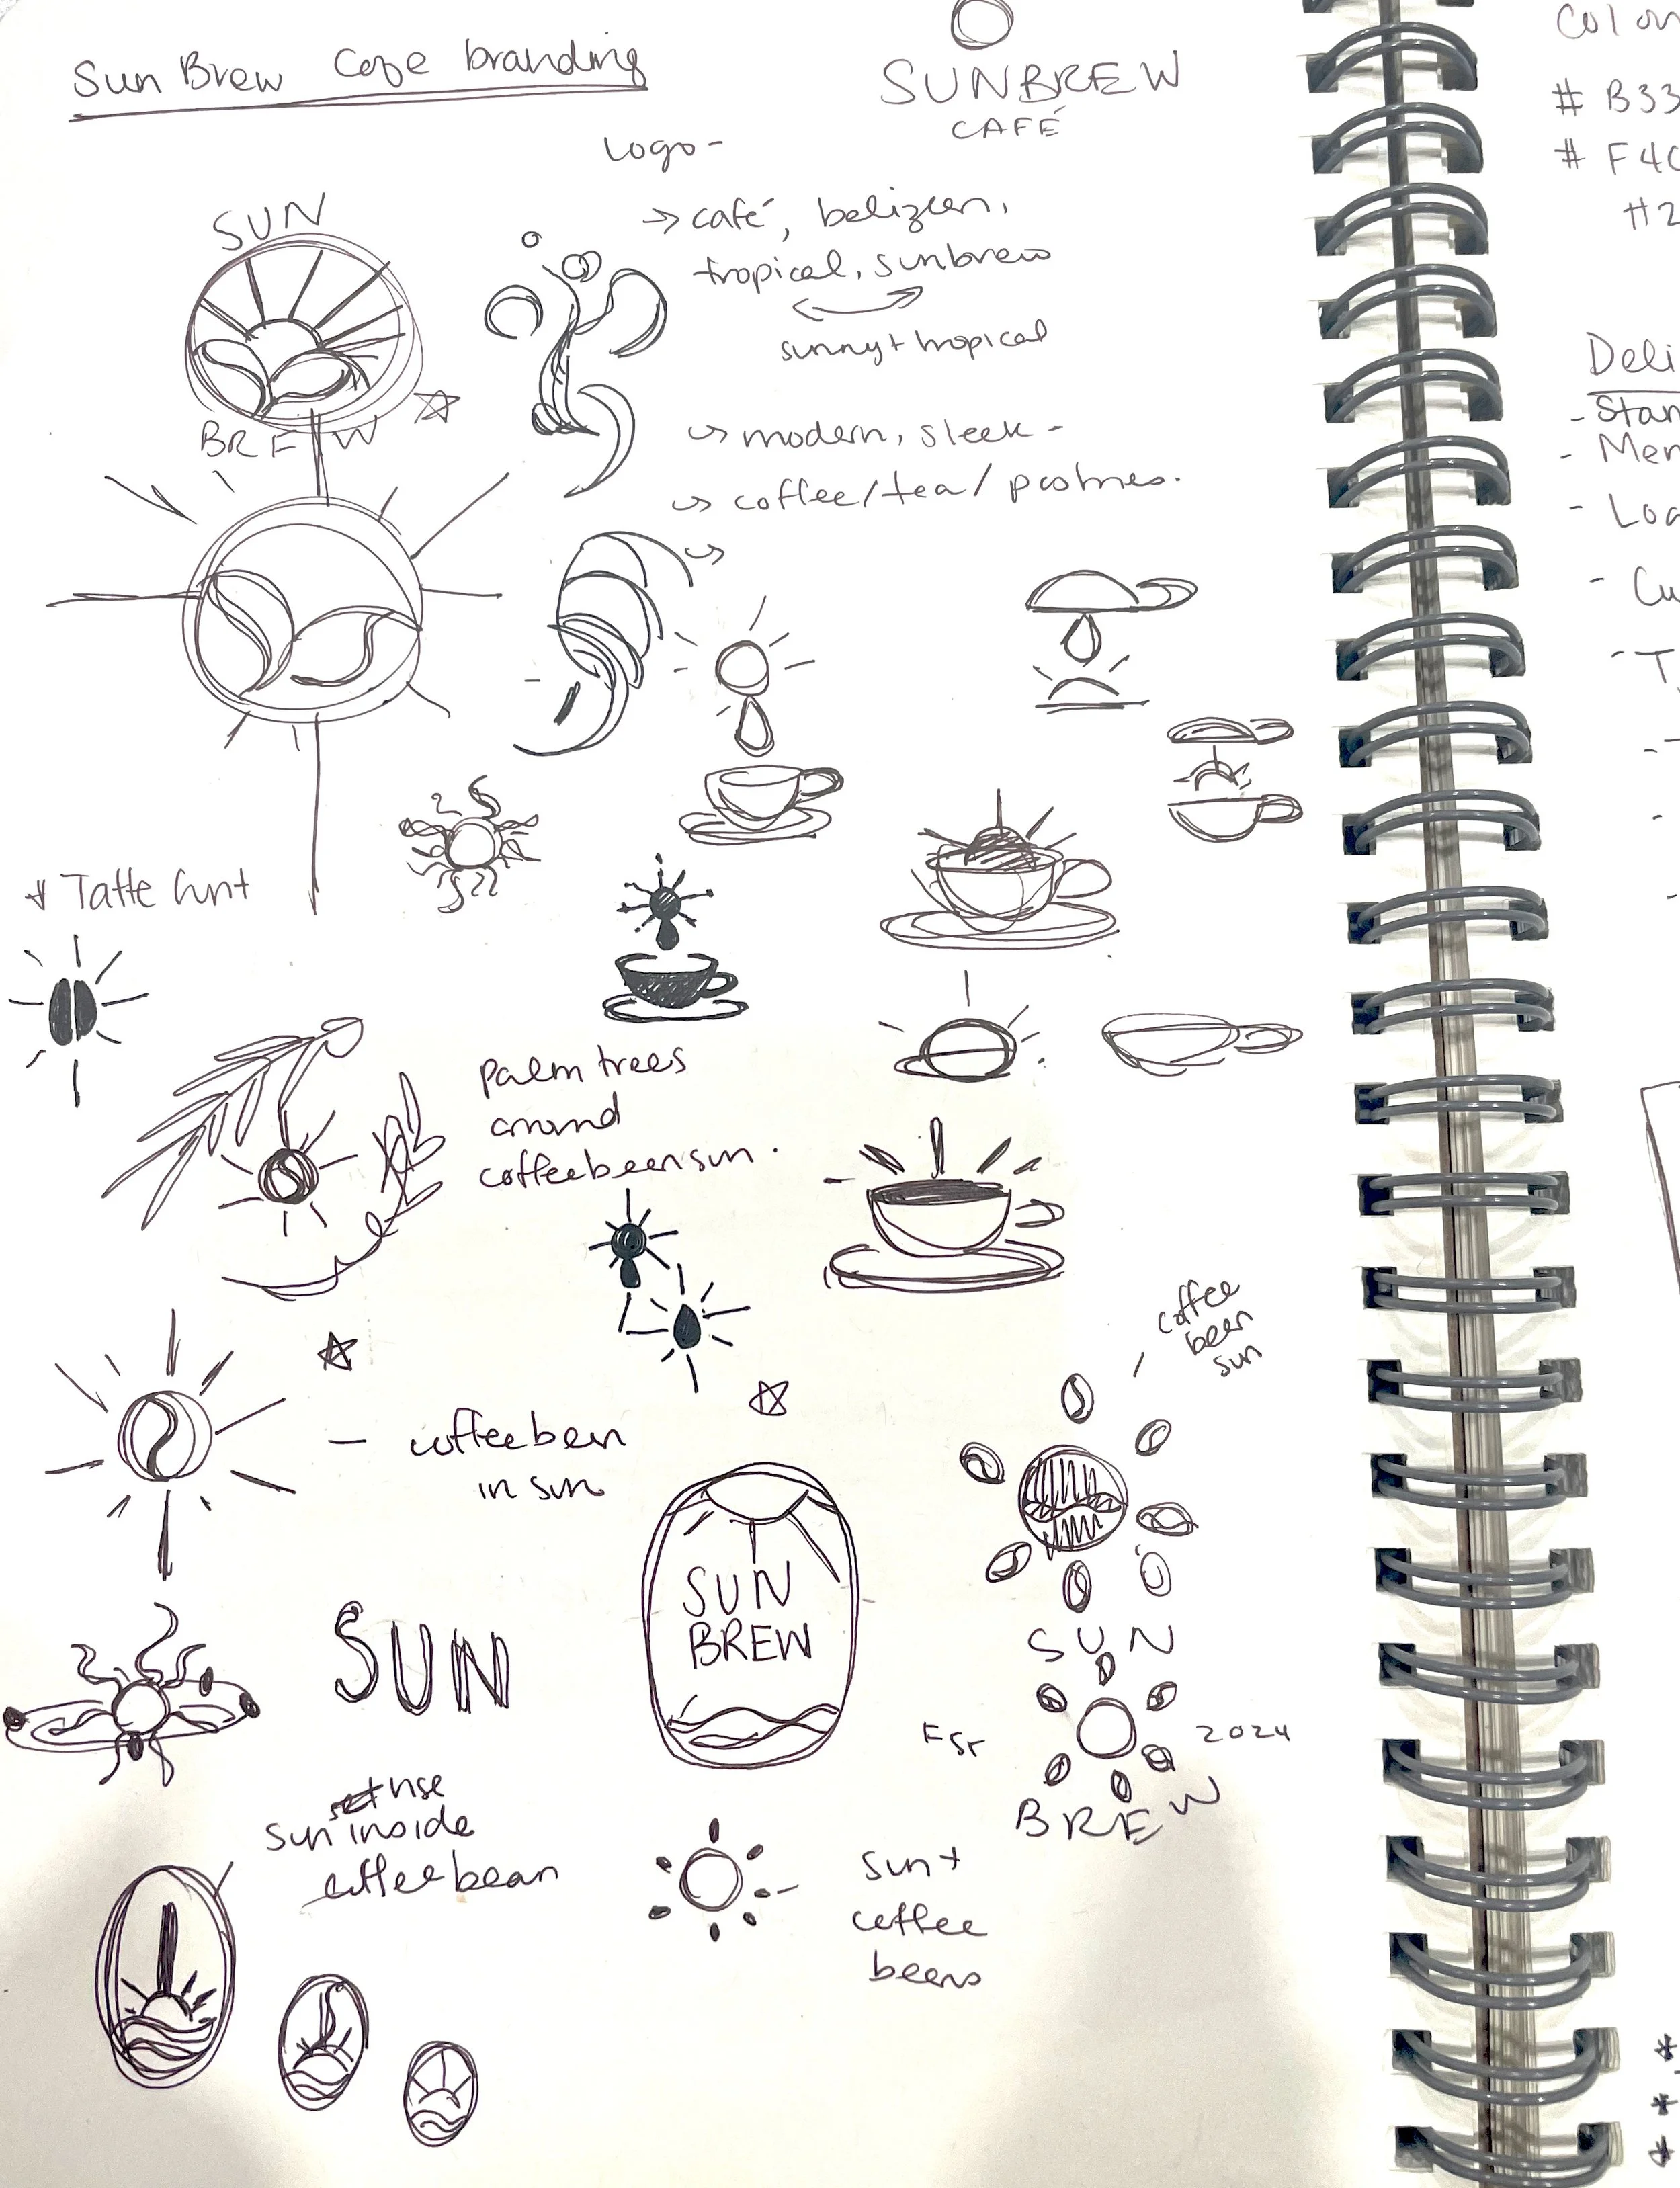 Sun Brew Cafe branding
SUNBREW
CAFÉ
Logo -
→ café, belizean,
tropical, sunbrew
sunny + tropical
→ modern, sleek -
→ coffee/tea/
SUN
BREW
Tatte
palm trees
around
coffee bean sun.
coffee
bean
sun
- coffee bean
in sun
SUN
BREW
SUN
SUN
Est 2024
BREW
rise
sun inside
coffee bean
sun +
coffee
beans
# B33
# F4C
#2
Deli
- Stan
-
-
- Cu
- T